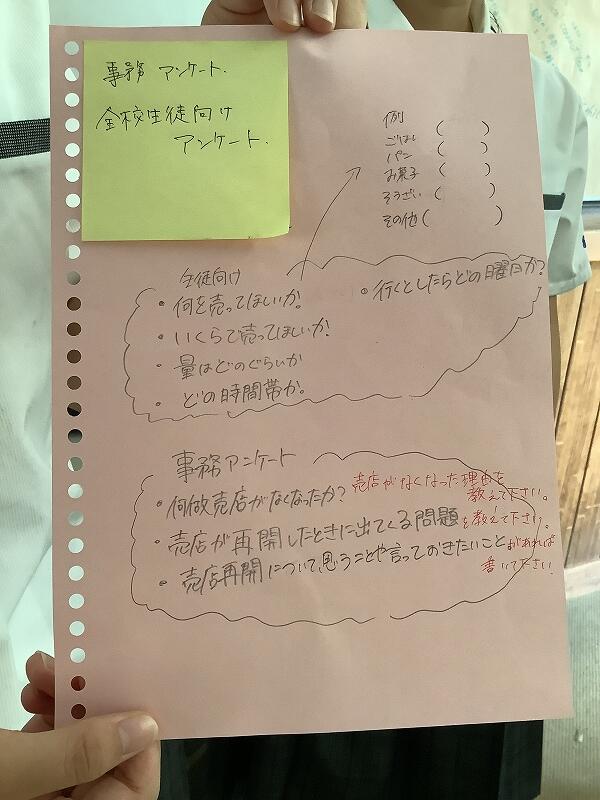 事務 アンケート.
全校生徒向け
アンケート.
例
ごはん ( )
パン ( )
お菓子 ( )
そうざい ( )
その他 ( )
生徒向け
・何を売ってほしいか.
・いくらで売ってほしいか.
・量はどのぐらいか
・どの時間帯か.
・行くとしたらどの曜日か?
事務アンケート
・何故売店がなくなったか? 売店がなくなった理由を
教えて下さい。
・売店が再開したときに出てくる問題を教えて下さい。
・売店再開について、思うことや言っておきたいことがあれば
書いて下さい.